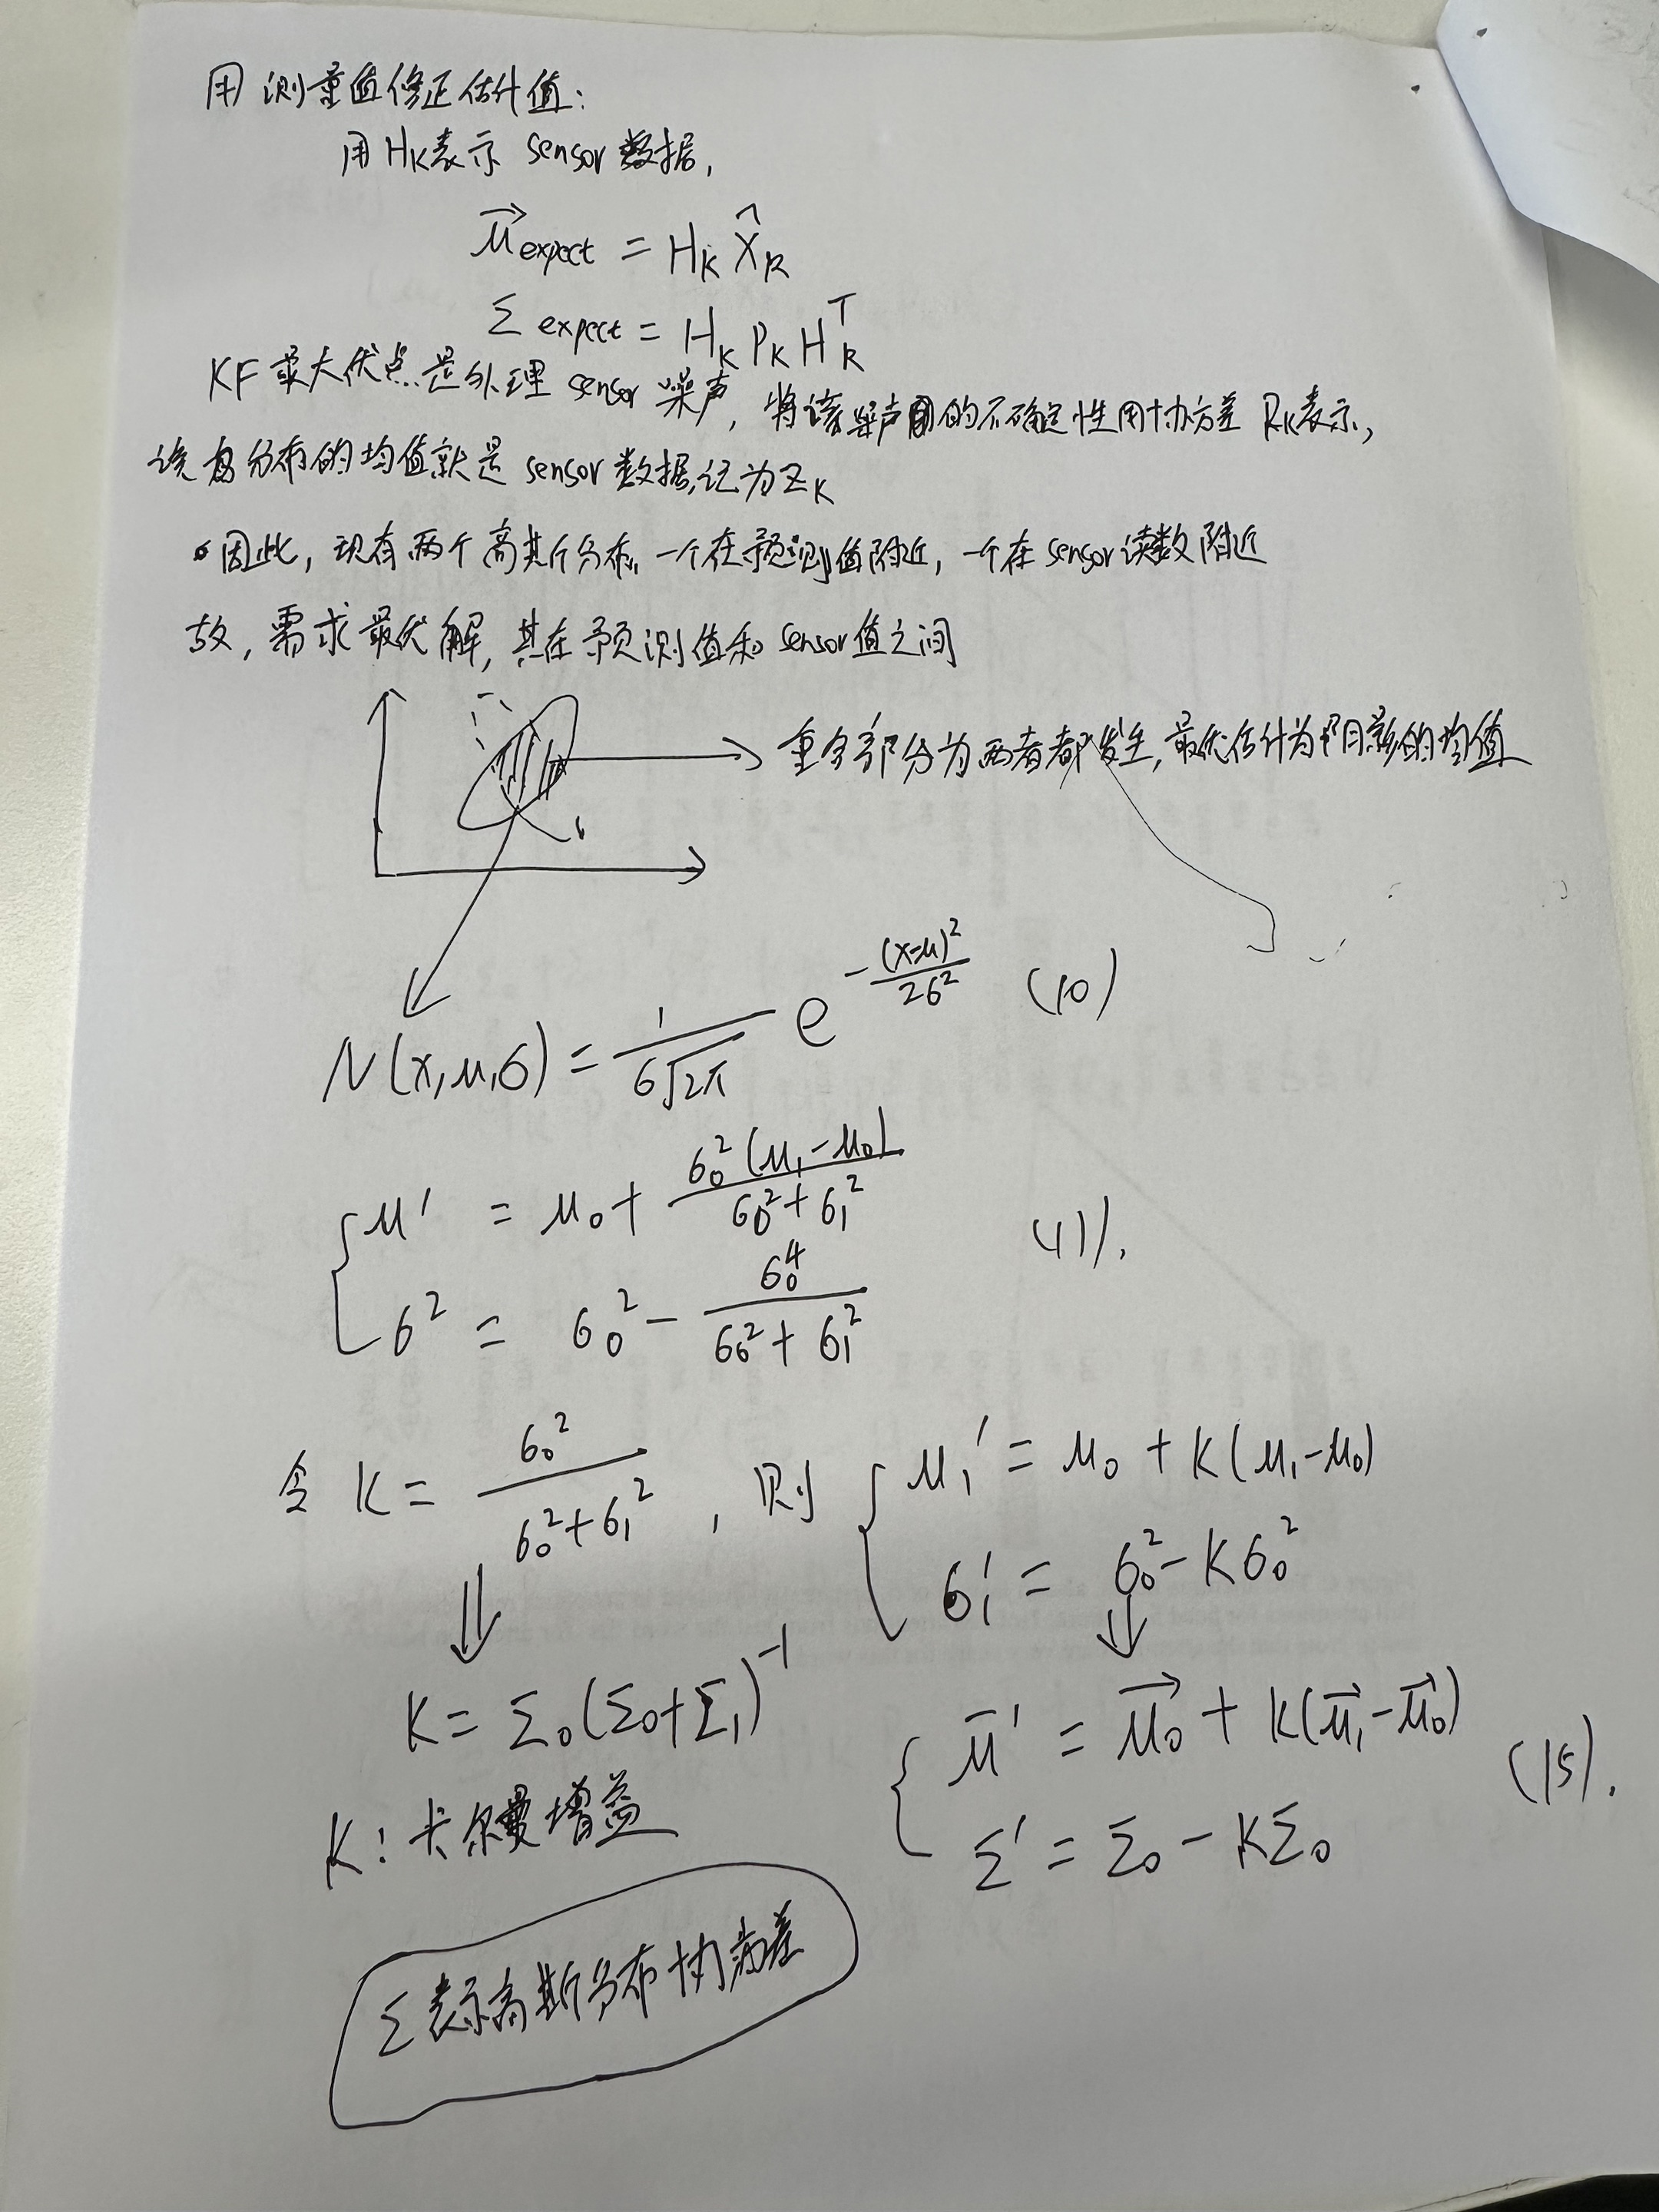 用测量值修正估计值:
用 Hₖ表示 sensor 数据,
μ⃗expect = Hₖ X̂ₖ
Σ expect = Hₖ Pₖ Hₖᵀ
KF 最大优点是处理 sensor 噪声, 将该噪声的不确定性用协方差 Rₖ表示,
该分布的均值就是 sensor 数据,记为 Zₖ
因此, 现有两个高斯分布, 一个在预测值附近, 一个在 sensor 读数附近
故, 需求最优解, 其在预测值和 sensor 值之间
重合部分为两者都发生, 最优估计为阴影的均值
N(x,μ,σ) = 1/(σ√2π) e^(-(x-μ)²/2σ²) (10)
μ' = μ₀ + σ₀²(μ₁-μ₀)/(σ₀²+σ₁²)
(11).
σ² = σ₀² - σ₀⁴/(σ₀²+σ₁²)
令 K = σ₀²/(σ₀²+σ₁²) , 则 μ₁' = μ₀ + K(μ₁-μ₀)
σ₁' = σ₀² - Kσ₀²
K = Σ₀(Σ₀+Σ₁)⁻¹
μ⃗' = μ⃗₀ + K(μ⃗₁-μ⃗₀)
(15).
Σ' = Σ₀ - KΣ₀
K: 卡尔曼增益
Σ表示高斯分布协方差